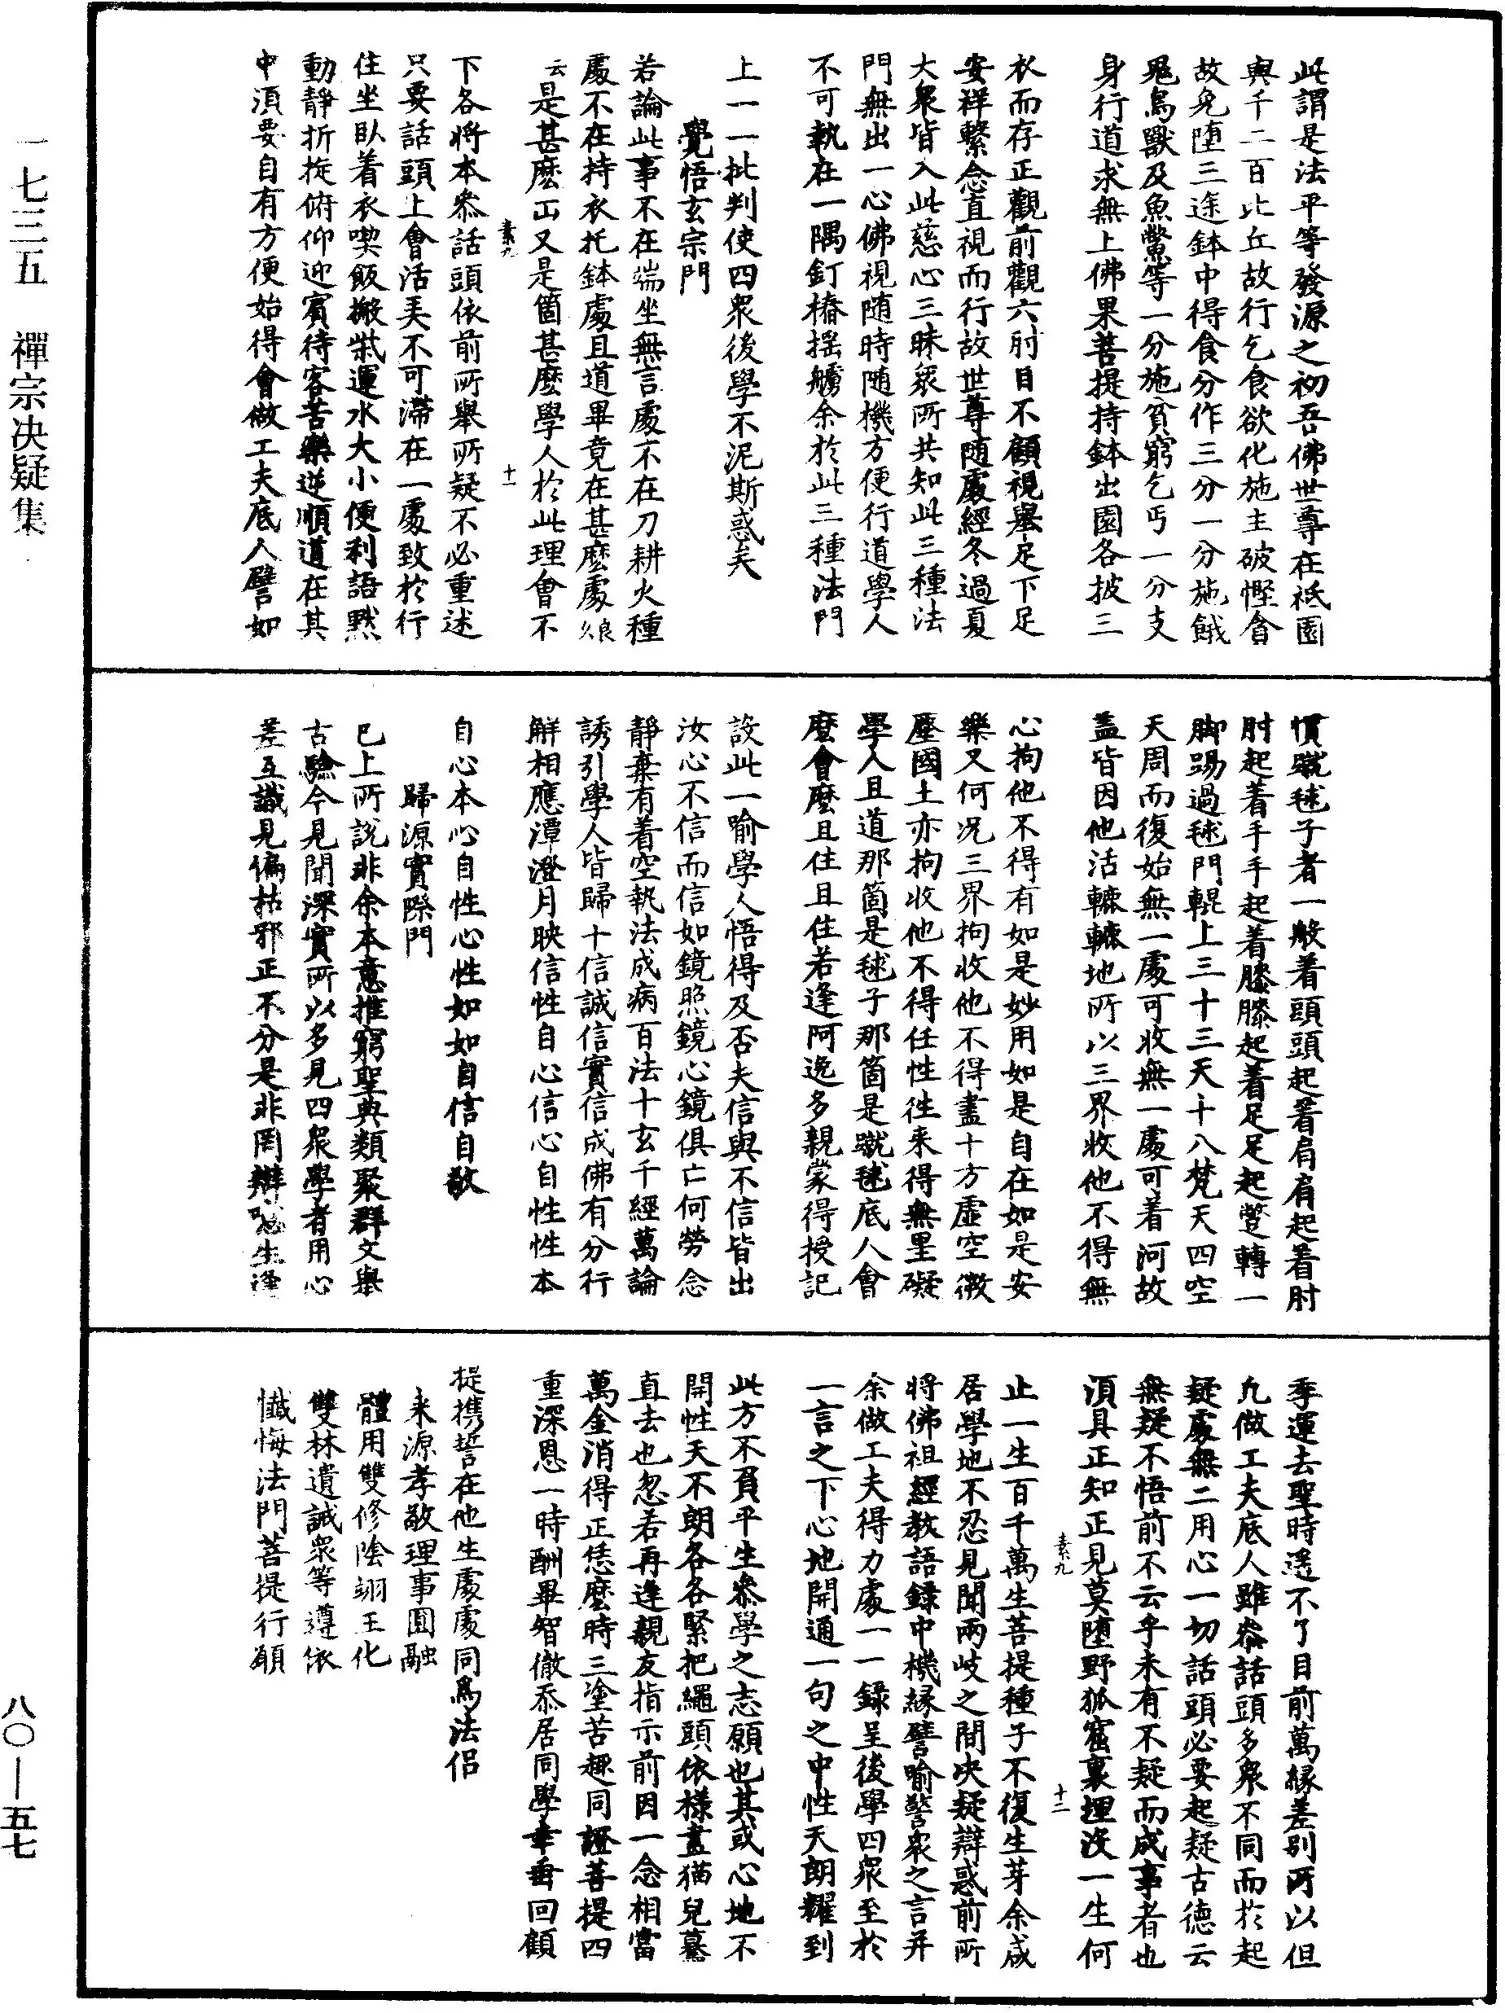 此謂是法平等發源之初吾佛世尊在祇園
與千二百比丘故行乞食欲化施主破慳貪
故免墮三途鉢中得食分作三分一分施餓
鬼鳥獸及魚鱉等一分施貧窮乞丐一分支
身行道求無上佛果菩提持鉢出園各披三
衣而存正觀前觀六肘目不顧視舉足下足
安祥繫念直視而行故世尊随處經冬過夏
大衆皆入此慈心三昧衆所共知此三種法
門無出一心佛視随時随機方便行道學人
不可執在一隅釘樁揺艣余於此三種法門
上一一批判使四衆後學不泥斯惑矣
覺悟玄宗門
若論此事不在端坐無言處不在刀耕火種
處不在持衣托鉢處且道畢竟在甚麽處良久
云是甚麽㘞又是箇甚麽學人於此理會不
素九
十一
下各將本叅話頭依前所舉所疑不必重述
只要話頭上會活美不可滯在一處致於行
住坐臥着衣喫飯搬柴運水大小便利語黙
動靜折旋俯仰迎賓待客苦樂逆順道在其
中須要自有方便始得會做工夫底人譬如
慣蹴毬子者一般着頭頭起着肩肩起着肘
肘起着手手起着膝膝起着足足起蹩轉一
脚踢過毬門輥上三十三天十八梵天四空
天周而復始無一處可收無一處可着河故
盖皆因他活轆轆地所以三界收他不得無
心拘他不得有如是妙用如是自在如是安
樂又何况三界拘收他不得盡十方虛空微
塵國土亦拘收他不得任性徃来得無罣礙
學人且道那箇是毬子那箇是蹴毬底人會
麽會麽且住且住若逢阿逸多親蒙得授記
設此一喻學人悟得及否夫信與不信皆出
汝心不信而信如鏡照鏡心鏡俱亡何勞念
靜棄有着空執法成病百法十玄千經萬論
誘引學人皆歸十信誠信實信成佛有分行
解相應潭澄月映信性自心信心自性性本
自心本心自性心性如如自信自敬
歸源實際門
已上所說非余本意推窮聖典類聚群文舉
古驗今見聞深實所以多見四衆學者用心
差互識見偏枯邪正不分是非罔辨嗟生逢
季運去聖時遙不了目前萬緣差別所以但
凢做工夫底人雖叅話頭多衆不同而於起
疑處無二用心一切話頭必要起疑古德云
無疑不悟前不云乎未有不疑而成事者也
須具正知正見莫墮野狐窟裏埋没一生何
素九
十二
止一生百千萬生菩提種子不復生芽余成
居學地不忍見聞兩岐之間决疑辯惑前所
將佛祖經教語錄中機緣譬喻警衆之言并
余做工夫得力處一一錄呈後學四衆至於
一言之下心地開通一句之中性天朗耀到
此方不負平生叅學之志願也其或心地不
開性天不朗各各緊把繩頭依樣畫猫兒驀
直去也忽若再逢親友指示前因一念相當
萬金消得正恁麽時三塗苦趣同證菩提四
重深恩一時酬畢智徹忝居同學幸垂回顧
提携誓在他生處處同為法侣
来源孝敬理事圓融
體用雙修陰翊王化
雙林遺誡衆等遵依
懺悔法門菩提行願
一七三五 禪宗决疑集
八〇—五七